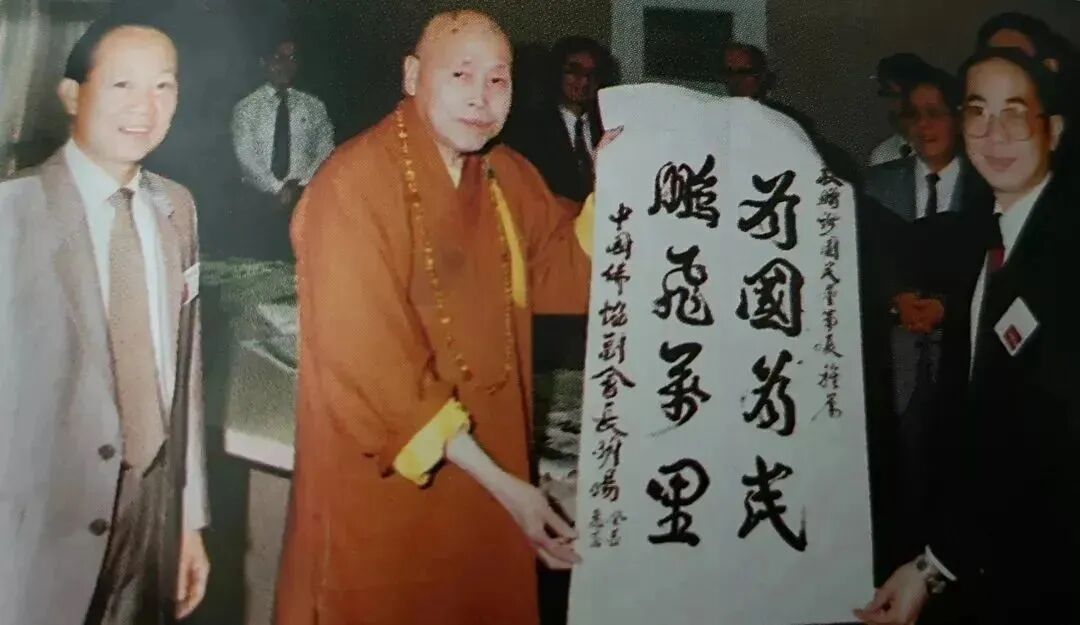 國民董事長雅屬
為國為民
鵬飛萬里
中国佛協副會長明暘